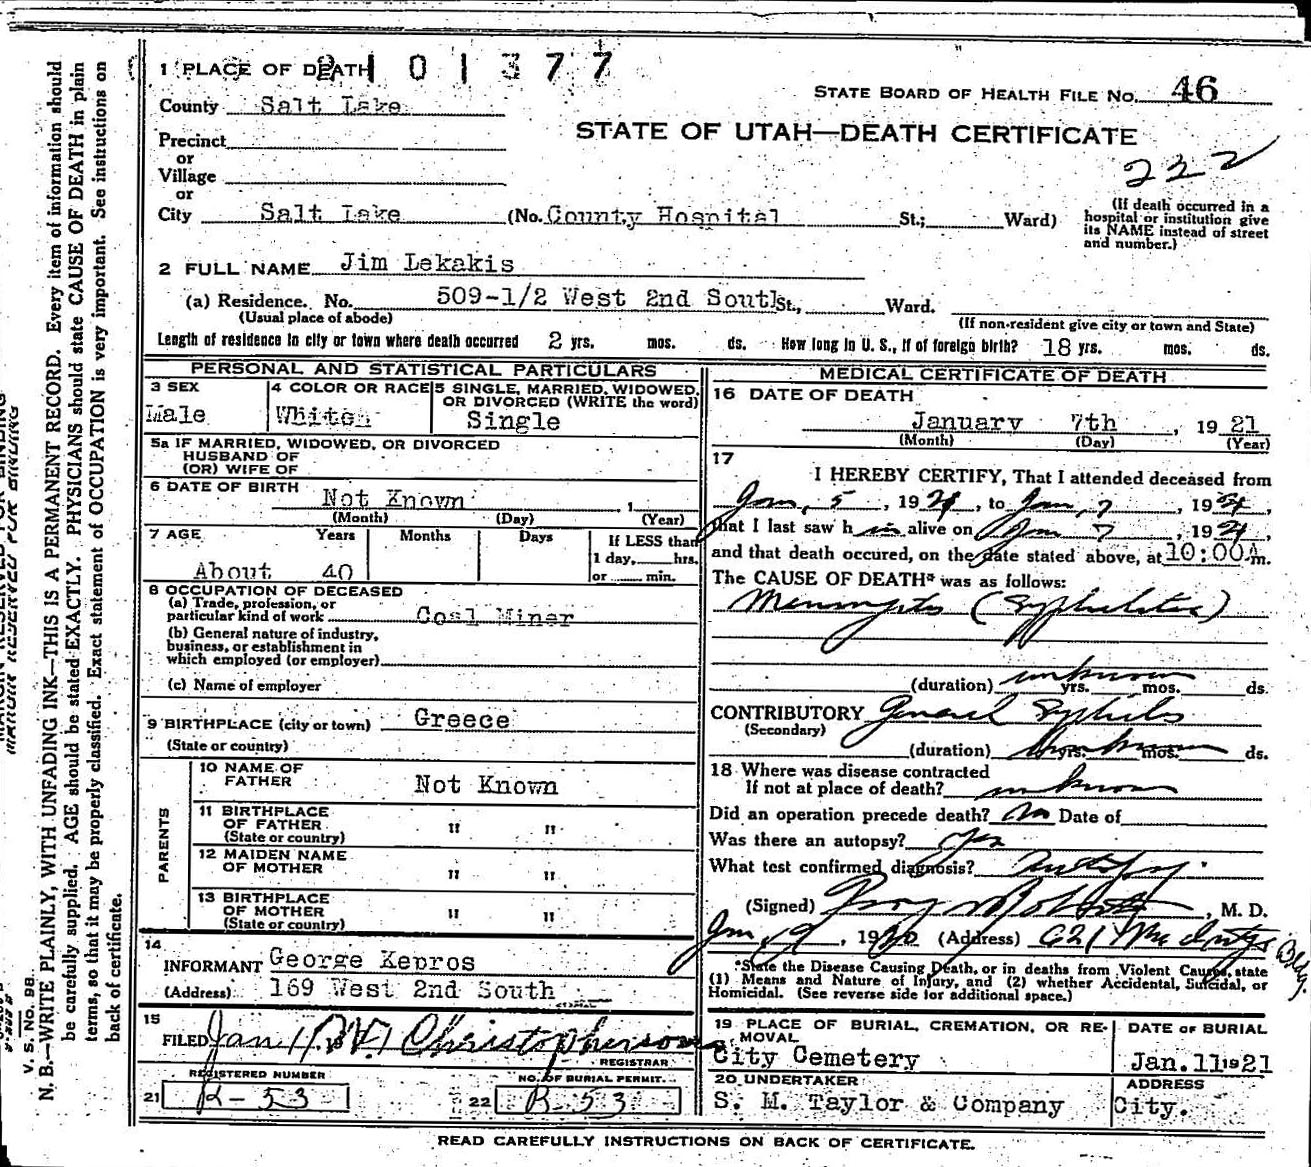 2101377
1 PLACE OF DEATH
STATE BOARD OF HEALTH FILE NO. 46
County Salt Lake
STATE OF UTAH—DEATH CERTIFICATE
Precinct
or
232
Village
or
City Salt Lake (No. County Hospital St.; Ward)
(If death occurred in a hospital or institution give its NAME instead of street and number.)
2 FULL NAME Jim Lekakis
(a) Residence. No. 509-1/2 West 2nd South St., Ward.
(Usual place of abode) (If non-resident give city or town and State)
Length of residence in city or town where death occurred 2 yrs. mos. ds. How long in U. S., if of foreign birth? 18 yrs. mos. ds.
PERSONAL AND STATISTICAL PARTICULARS
3 SEX
Male
4 COLOR OR RACE
White
5 SINGLE, MARRIED, WIDOWED, OR DIVORCED (WRITE the word)
Single
5a IF MARRIED, WIDOWED, OR DIVORCED
HUSBAND OF
(OR) WIFE OF
6 DATE OF BIRTH Not Known , 1
(Month) (Day) (Year)
7 AGE Years Months Days If LESS than
1 day, hrs.
or min.
About 40
8 OCCUPATION OF DECEASED
(a) Trade, profession, or
particular kind of work Coal Miner
(b) General nature of industry,
business, or establishment in
which employed (or employer)
(c) Name of employer
9 BIRTHPLACE (city or town) Greece
(State or country)
PARENTS
10 NAME OF
FATHER Not Known
11 BIRTHPLACE
OF FATHER " "
(State or country)
12 MAIDEN NAME
OF MOTHER " "
13 BIRTHPLACE
OF MOTHER " "
(State or country)
14
INFORMANT George Kepros
(Address) 169 West 2nd South
15
FILED Jan 11 Christopherson
REGISTRAR
REGISTERED NUMBER
21 R-53
NO. OF BURIAL PERMIT.
22 R 53
MEDICAL CERTIFICATE OF DEATH
16 DATE OF DEATH
January 7th , 19 21
(Month) (Day) (Year)
17
I HEREBY CERTIFY, That I attended deceased from
Jan, 5 , 1921, to Jan, 7 , 1921,
that I last saw him alive on Jan 7 , 1921,
and that death occured, on the date stated above, at 10:00A.m.
The CAUSE OF DEATH* was as follows:
(Syphilitic)
(duration) unknown yrs. mos. ds.
CONTRIBUTORY General Syphilis
(Secondary)
(duration) unknown yrs. mos. ds.
18 Where was disease contracted
If not at place of death? unknown
Did an operation precede death? No Date of
Was there an autopsy? Yes
What test confirmed diagnosis? Autopsy.
(Signed) , M. D.
Jan, 9 , 1920 (Address) 621 McIntyre Bldg.
*State the Disease Causing Death, or in deaths from Violent Causes, state
(1) Means and Nature of Injury, and (2) whether Accidental, Suicidal, or
Homicidal. (See reverse side for additional space.)
19 PLACE OF BURIAL, CREMATION, OR RE-
MOVAL
City Cemetery
DATE OF BURIAL
Jan. 11 1921
20 UNDERTAKER
S. M. Taylor & Company
ADDRESS
City.
READ CAREFULLY INSTRUCTIONS ON BACK OF CERTIFICATE.
MARGIN RESERVED FOR BINDING
V. S. No. 98
N. B.—WRITE PLAINLY, WITH UNFADING INK—THIS IS A PERMANENT RECORD. Every item of information should
be carefully supplied. AGE should be stated EXACTLY. PHYSICIANS should state CAUSE OF DEATH in plain
terms, so that it may be properly classified. Exact statement of OCCUPATION is very important. See instructions on
back of certificate.